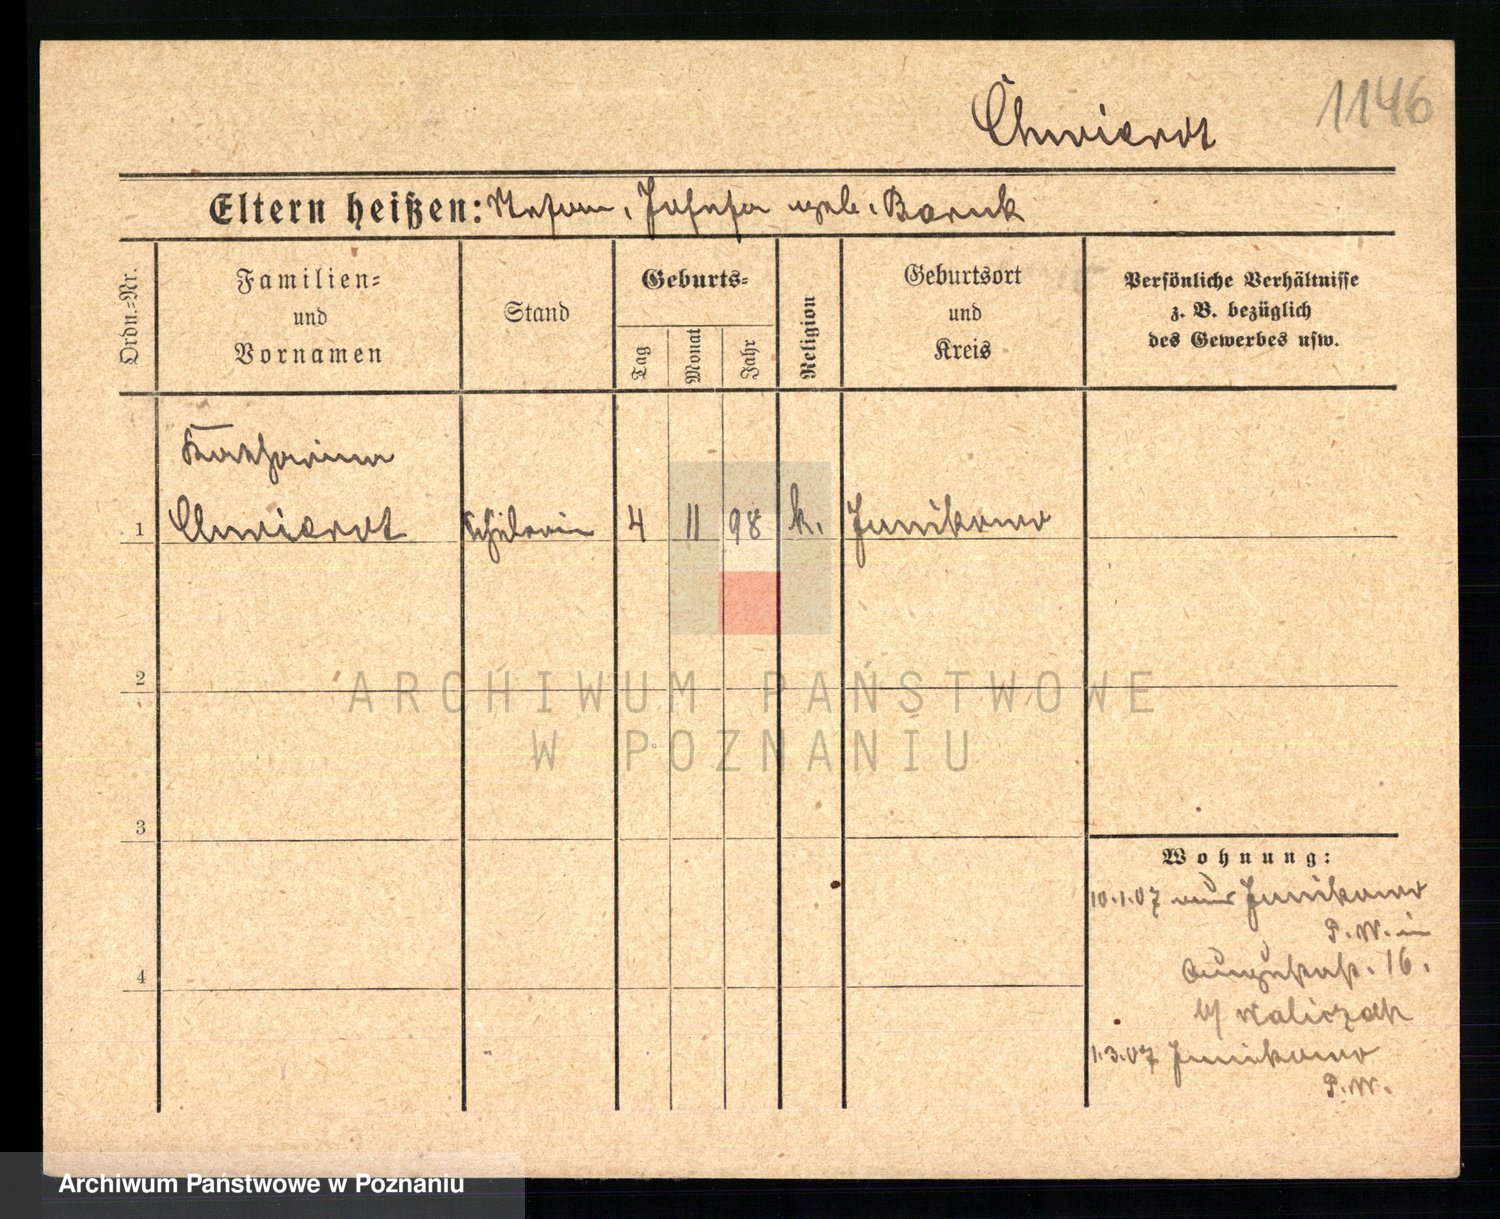 1146
Chwierot
Eltern heißen: Josefa geb. Baruk
Ordn.-Nr.
Familien-
und
Vornamen
Stand
Geburts-
Tag
Monat
Jahr
Religion
Geburtsort
und
Kreis
Persönliche Verhältnisse
z. B. bezüglich
des Gewerbes usw.
Katharina
1 Chwierot Schülerin 4 11 98 k. Junikowo
2
ARCHIWUM PAŃSTWOWE
W POZNANIU
3
Wohnung:
10.1.07 Junikowo
P.W. in
16.
4
b/ Kaliczak
1.3.07 Junikowo
P.W.
Archiwum Państwowe w Poznaniu